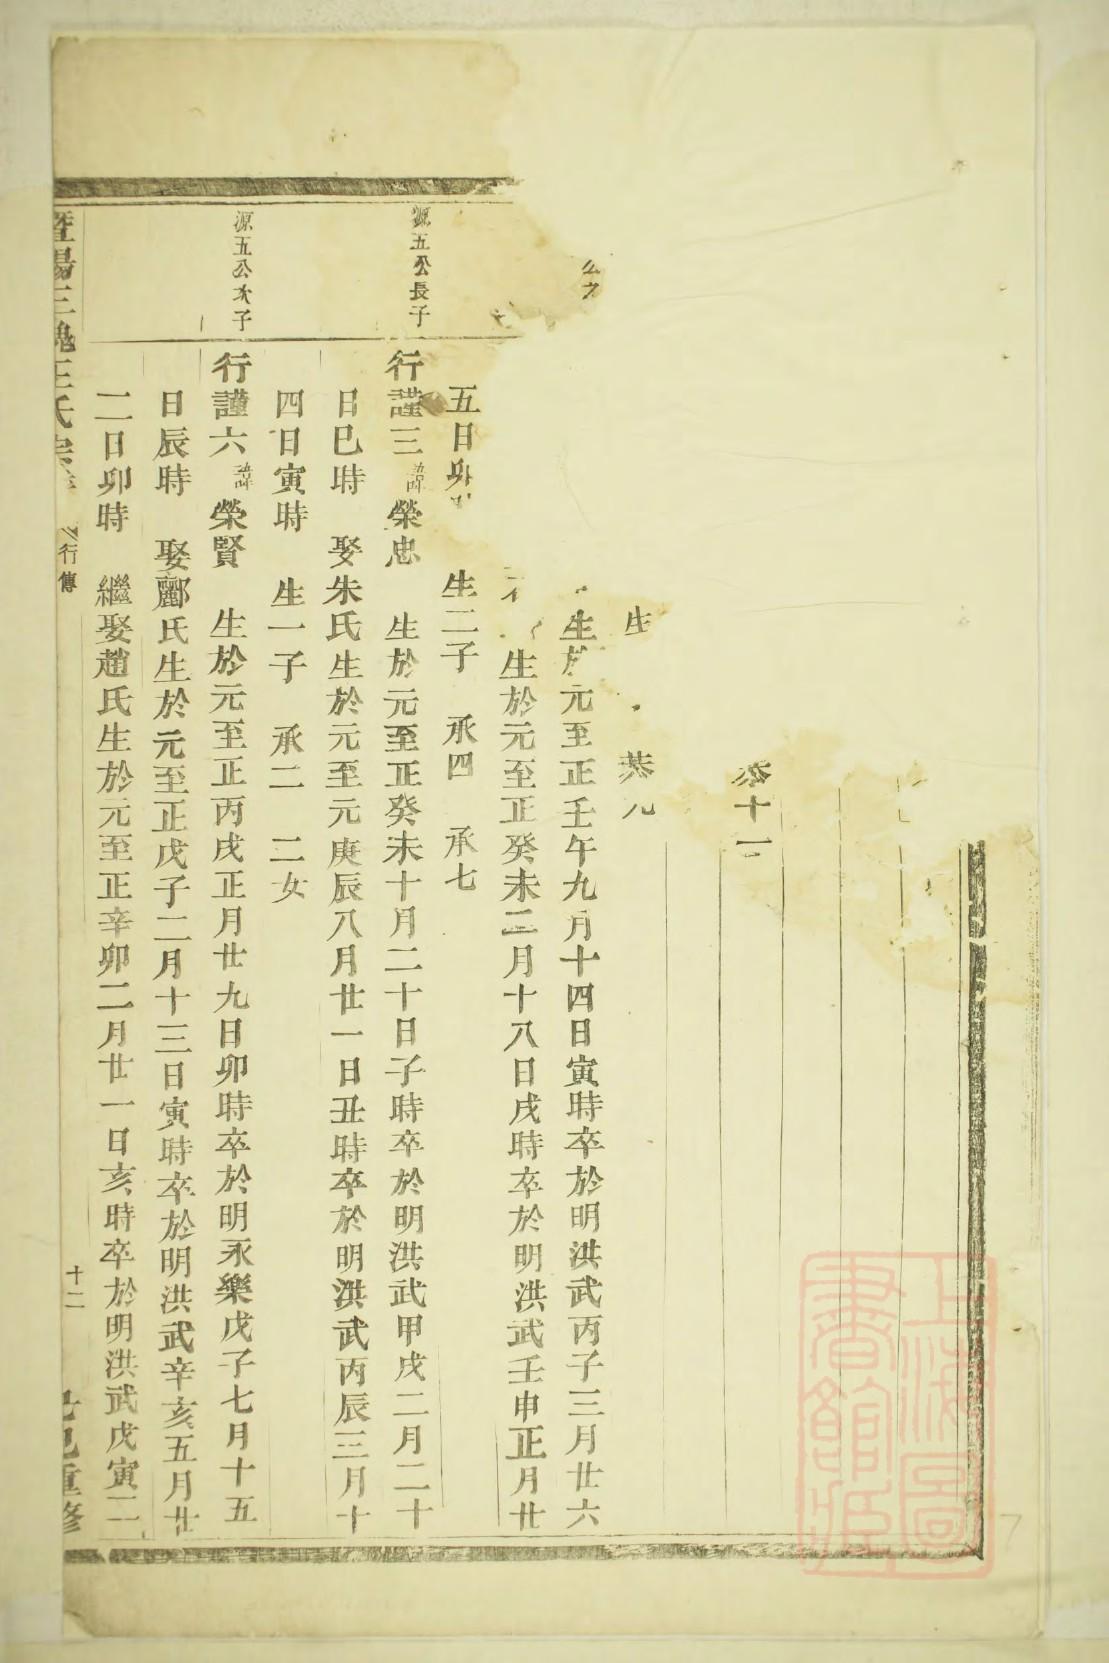 恭十一
生 恭九
公之
生於元至正壬午九月十四日寅時卒於明洪武丙子三月廿六
生於元至正癸未二月十八日戌時卒於明洪武壬申正月廿
五日卯 生二子 承四 承七
源五公長子
行謹三 諱榮忠 生於元至正癸未十月二十日子時卒於明洪武甲戌二月二十
日巳時 娶朱氏生於元至元庚辰八月廿一日丑時卒於明洪武丙辰三月十
四日寅時 生一子 承二 二女
源五公次子
行謹六 諱榮賢 生於元至正丙戌正月廿九日卯時卒於明永樂戊子七月十五
日辰時 娶酈氏生於元至正戊子二月十三日寅時卒於明洪武辛亥五月廿
二日卯時 繼娶趙氏生於元至正辛卯二月廿一日亥時卒於明洪武戊寅二
暨陽三槐王氏宗
行傳
十二
己巳重修
上海圖書館藏
7